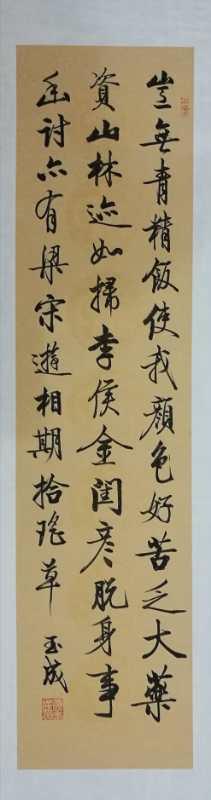 豈無青精飯使我顏色好苦乏大藥
資山林迹如掃李侯金閨彦脱身事
幽討亦有梁宋遊相期拾瑶草
玉成